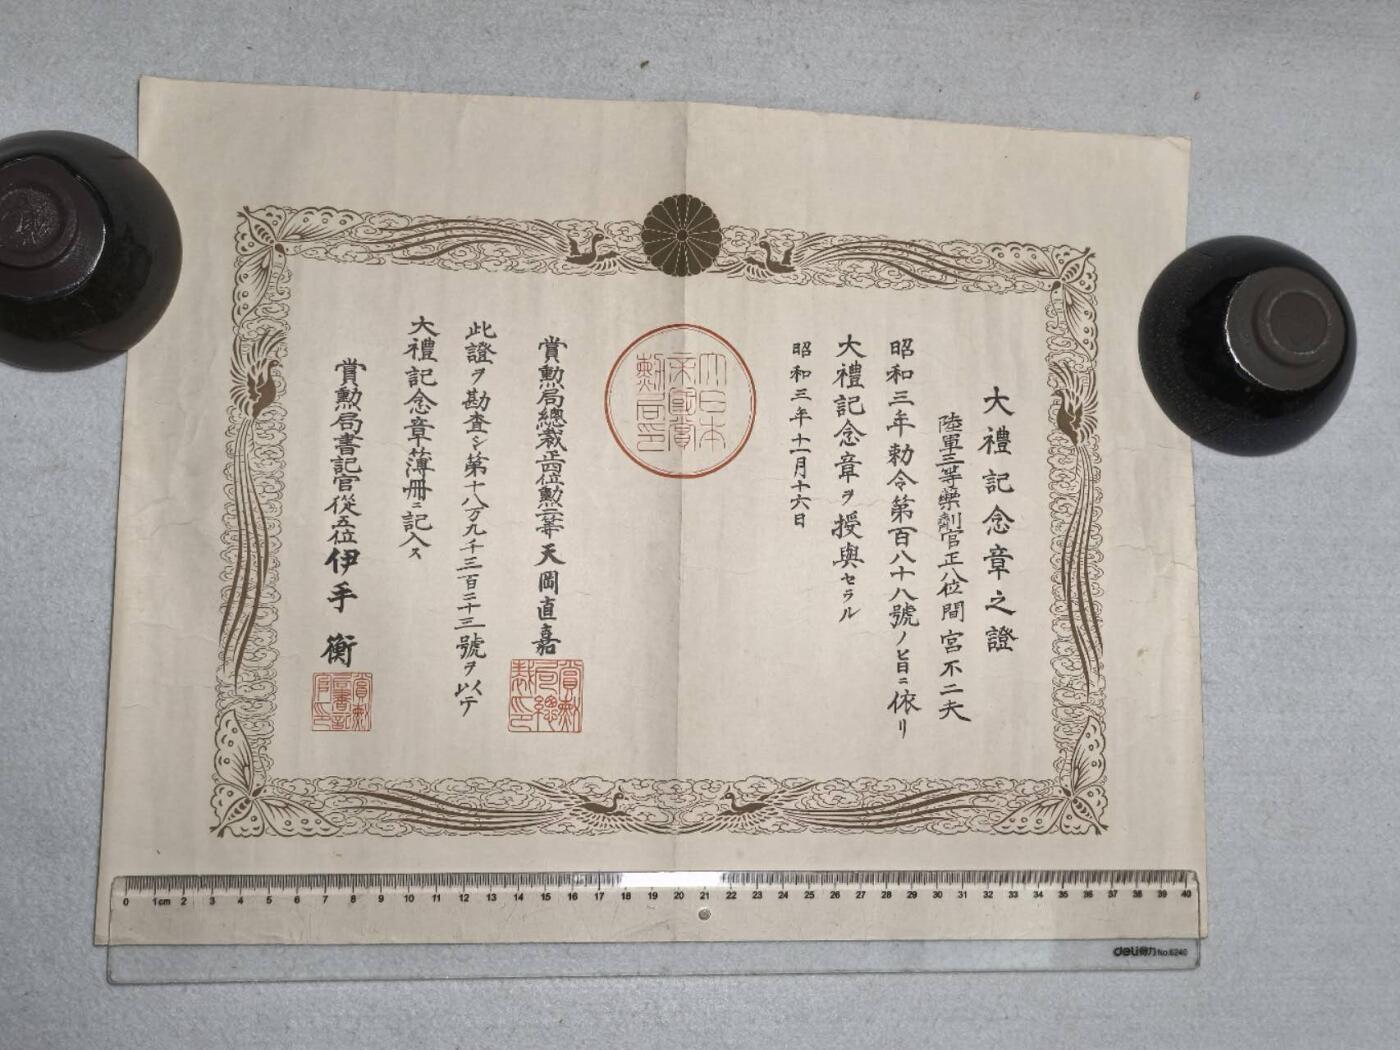 大禮記念章之證
陸軍三等藥劑官正八位間宮不二夫
昭和三年勅令第百八十八號ノ旨ニ依リ
大禮記念章ヲ授與セラル
昭和三年十一月十六日
大日本
帝國賞
勲局印
賞勲局總裁正四位勲二等天岡直嘉
賞勲
局總
裁印
此證ヲ勘査シ第十八万九千三百二十三號ヲ以テ
大禮記念章薄冊ニ記入ス
賞勲局書記官從五位伊手衡
賞勲
局書記
官印
0 1cm 2 3 4 5 6 7 8 9 10 11 12 13 14 15 16 17 18 19 20 21 22 23 24 25 26 27 28 29 30 31 32 33 34 35 36 37 38 39 40
deli得力 No.6240